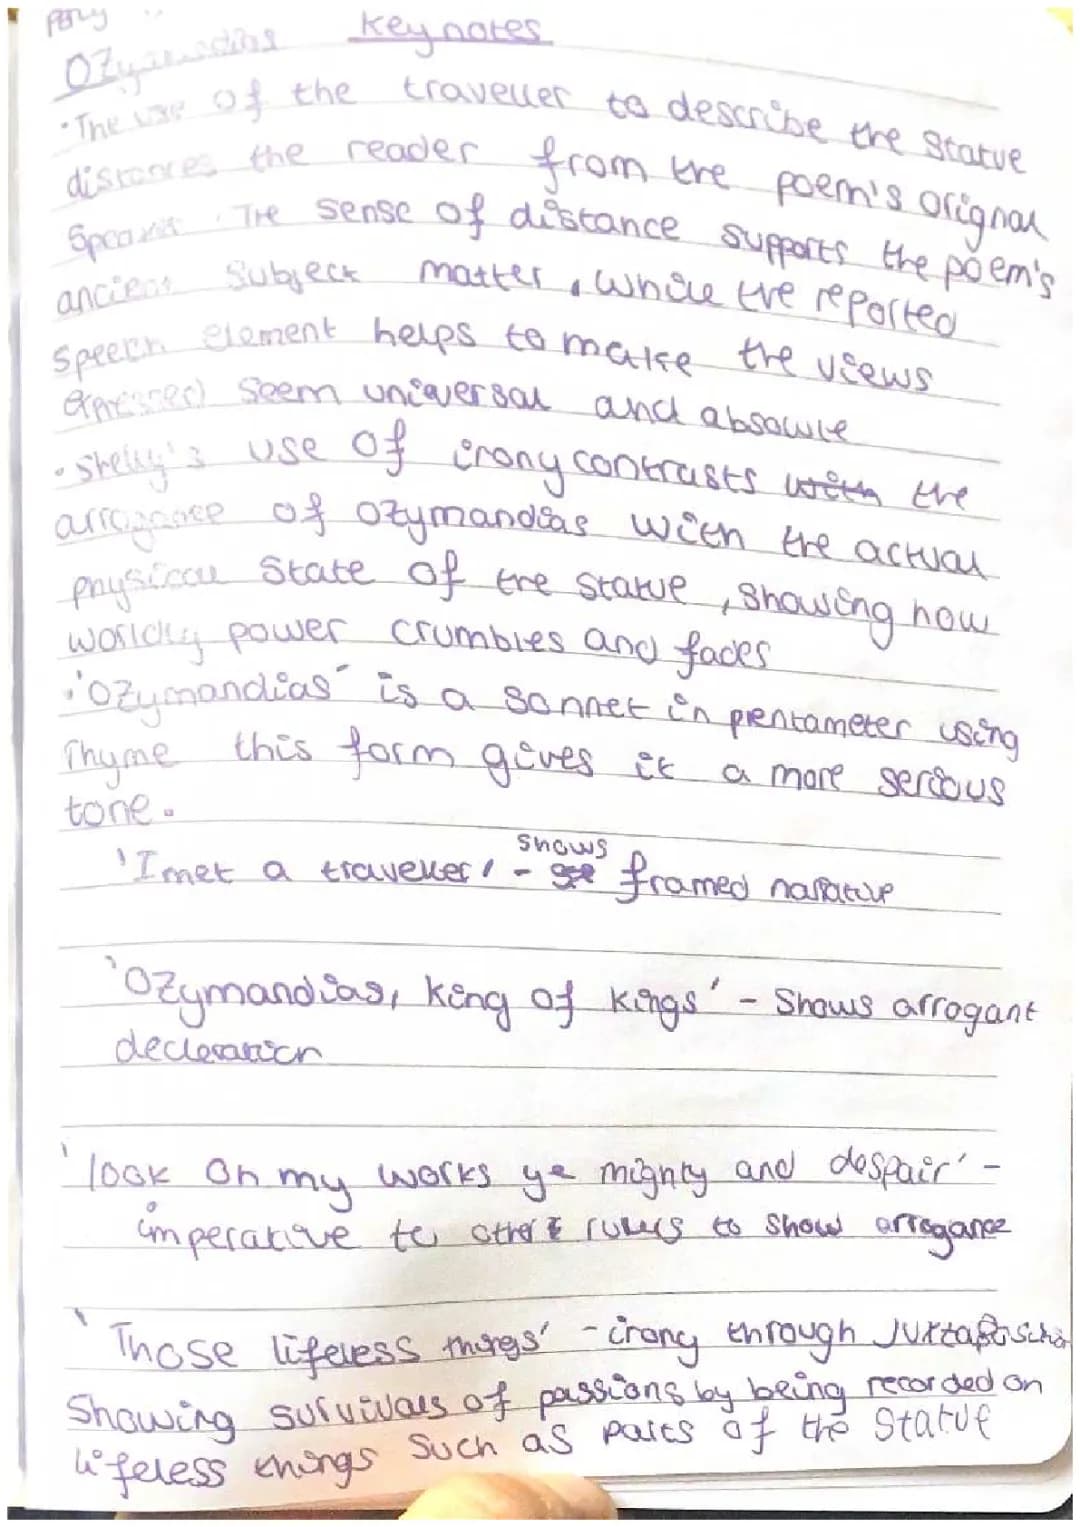 Ozymandias key notes
• The use of the traveller to describe the statue
distances the reader from the poem's orignal
Speaker. The sense of distance supports the poem's
ancient subject matter, while the reported
speech element helps to make the views
expressed seem universal and absolute
• Shelly's use of irony contrasts with the
arrogance of Ozymandias with the actual
physical state of the statue, showing how
worldly power crumbles and fades
• 'Ozymandias' is a sonnet in pentameter using
rhyme this form gives it a more serious
tone.
'I met a traveller' - shows framed narrative
'Ozymandias, king of kings' - Shows arrogant
decleration
'look on my works ye mighty and despair' -
imperative to other rulers to show arrogance
'Those lifeless things' - irony through Juxtaposition
Showing survivals of passions by being recorded on
lifeless things such as parts of the Statue